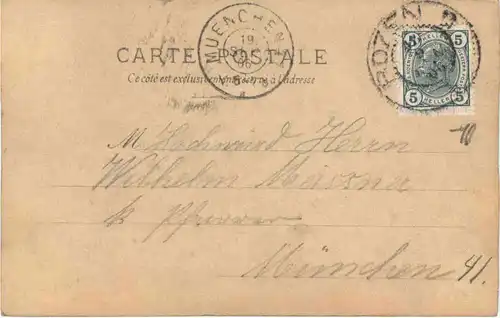 CARTE POSTALE
Ce côté est exclusivement réservé à l'adresse
MUENCHEN
19
BOZEN 2
5 5
HELLER
5 5
M Hochwürd Herrn
Wilhelm
k. Pfarrer
München 41.